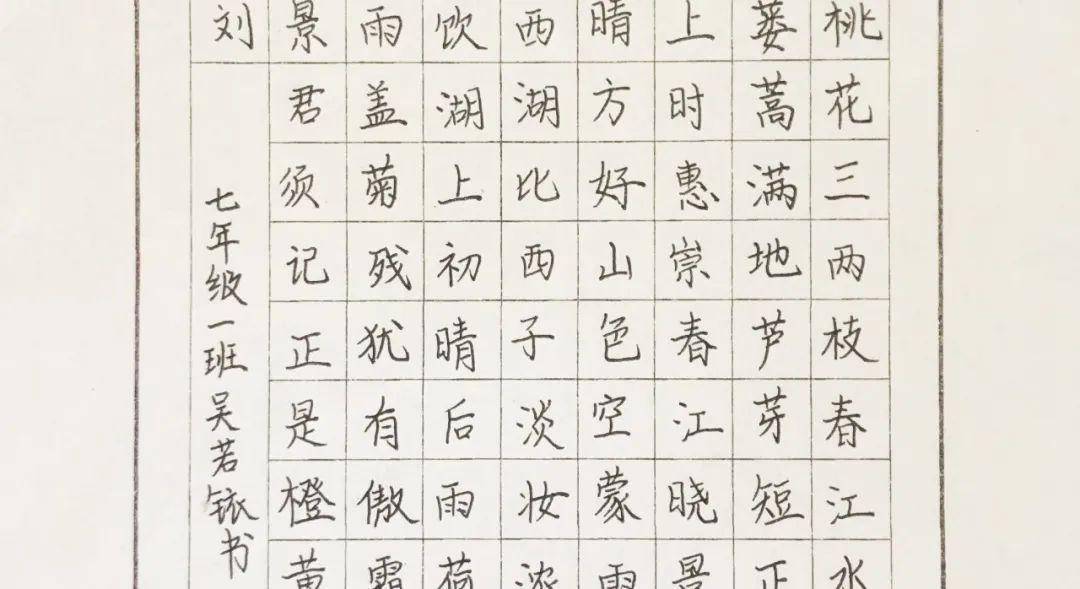 桃花三两枝春江水
蒌蒿满地芦芽短正
上时惠崇春江晓景
晴方好山色空蒙雨
西湖比西子淡妆浓
饮湖上初晴后雨荷
雨盖菊残犹有傲霜
景君须记正是橙黄
刘
七年级一班吴若铱书